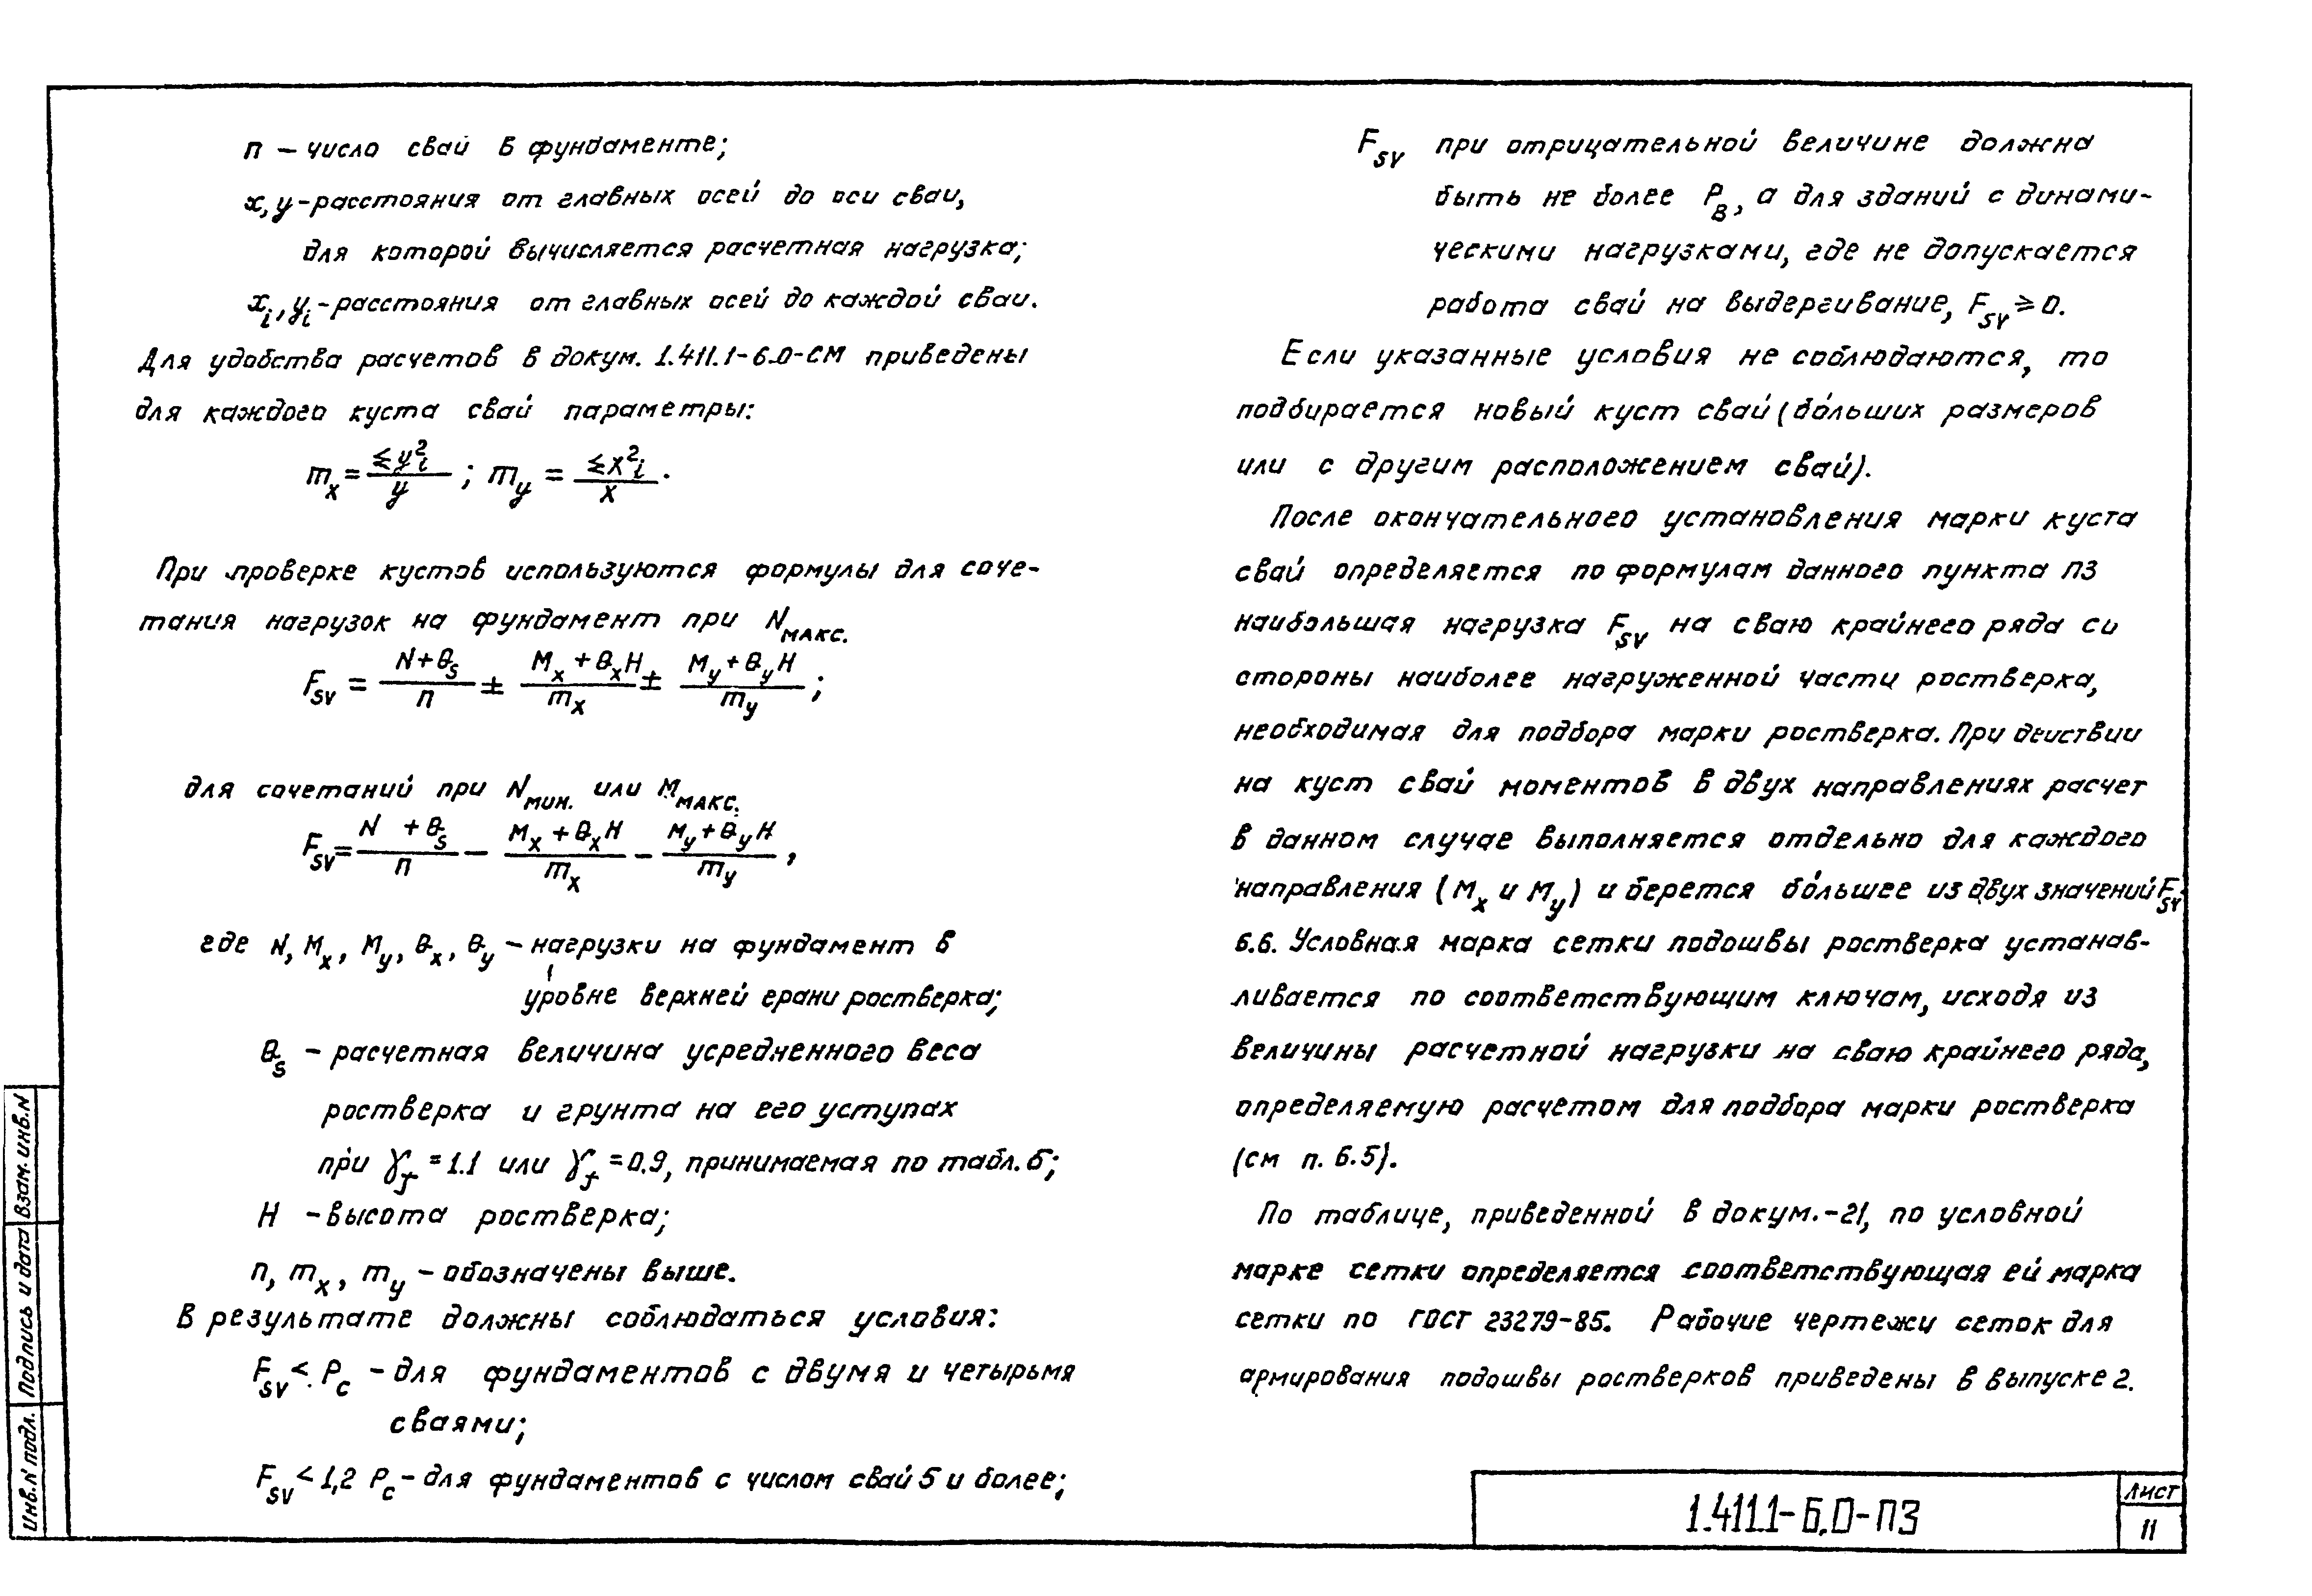 п – число свай в фундаменте;
x, y – расстояния от главных осей до оси сваи,
для которой вычисляется расчетная нагрузка;
xi, yi – расстояния от главных осей до каждой сваи.
Для удобства расчетов в докум. 1.411.1-6.0-СМ приведены
для каждого куста свай параметры:
mx = ≤y²i / y ; my = ≤x²i / x .
При проверке кустов используются формулы для соче-
тания нагрузок на фундамент при Nмакс.
Fsv = (N+Qs)/n ± (Mx+QxH)/mx ± (My+QyH)/my ;
для сочетаний при Nмин. или Mмакс.:
Fsv = (N +Qs)/n − (Mx+QxH)/mx − (My+QyH)/my ,
где N, Mx, My, Qx, Qy – нагрузки на фундамент в
уровне верхней грани ростверка;
Qs – расчетная величина усредненного веса
ростверка и грунта на его уступах
при γf = 1.1 или γf = 0.9, принимаемая по табл. 6;
H – высота ростверка;
n, mx, my – обозначены выше.
В результате должны соблюдаться условия:
Fsv < Pc – для фундаментов с двумя и четырьмя
сваями;
Fsv < 1,2 Pc – для фундаментов с числом свай 5 и более;
Fsv при отрицательной величине должна
быть не более Pв, а для зданий с динами-
ческими нагрузками, где не допускается
работа свай на выдергивание, Fsv ≥ 0.
Если указанные условия не соблюдаются, то
подбирается новый куст свай (бо́льших размеров
или с другим расположением свай).
После окончательного установления марки куста
свай определяется по формулам данного пункта ПЗ
наибольшая нагрузка Fsv на сваю крайнего ряда со
стороны наиболее нагруженной части ростверка,
необходимая для подбора марки ростверка. При деиствии
на куст свай моментов в двух направлениях расчет
в данном случае выполняется отдельно для каждого
направления (Mx и My) и берется бо́льшее из двух значений Fsv.
6.6. Условная марка сетки подошвы ростверка устанав-
ливается по соответствующим ключам, исходя из
величины расчетной нагрузки на сваю крайнего ряда,
определяемую расчетом для подбора марки ростверка
(см п. 6.5).
По таблице, приведенной в докум.-21, по условной
марке сетки определяется соответствующая ей марка
сетки по ГОСТ 23279-85. Рабочие чертежи сеток для
армирования подошвы ростверков приведены в выпуске 2.
Инв.N подл.
Подпись и дата
Взам. инв.N
1.411.1-6.0-ПЗ
Лист
11